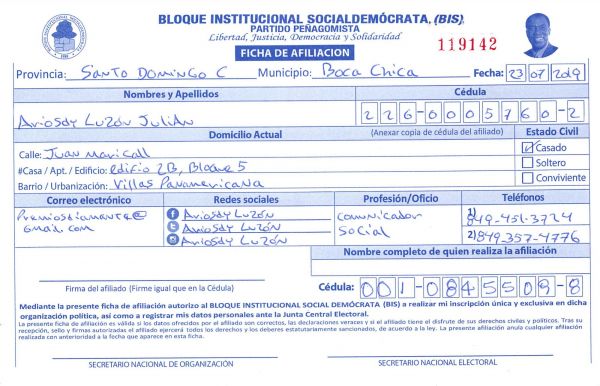 BLOQUE INSTITUCIONAL SOCIALDEMÓCRATA, (BIS)
PARTIDO PEÑAGOMISTA
Libertad, Justicia, Democracia y Solidaridad
FICHA DE AFILIACION
119142
Provincia: Santo Domingo C Municipio: Boca Chica Fecha: 23 07 2019
Nombres y Apellidos Cédula
Ariosdy Luzón Julián 226-0005760-2
Domicilio Actual (Anexar copia de cédula del afiliado) Estado Civil
Calle: Juan Maricall Casado
#Casa / Apt. / Edificio: edificio 2B, Bloque 5 Soltero
Barrio / Urbanización: Villas Panamericana Conviviente
Correo electrónico Redes sociales Profesión/Oficio Teléfonos
@
Gmail.com
Ariosdy Luzón
Ariosdy Luzón
Ariosdy Luzón
comunicador
social
1) 849-451-3724
2) 849-357-4776
Nombre completo de quien realiza la afiliación
Firma del afiliado (Firme igual que en la Cédula) Cédula: 001-0845509-8
Mediante la presente ficha de afiliación autorizo al BLOQUE INSTITUCIONAL SOCIAL DEMÓCRATA (BIS) a realizar mi inscripción única y exclusiva en dicha
organización política, así como a registrar mis datos personales ante la Junta Central Electoral.
La presente ficha de afiliación es válida si los datos ofrecidos por el afiliado son correctos, las declaraciones veraces y si el afiliado tiene el disfrute de sus derechos civiles y políticos. Tras su
recepción, sello y firmas autorizadas el afiliado ejercerá todos los derechos y los deberes estatutariamente sancionados, de acuerdo a la ley. La presente afiliación anula cualquier afiliación
realizada con anterioridad a la fecha que aparece en esta ficha.
SECRETARIO NACIONAL DE ORGANIZACIÓN SECRETARIO NACIONAL ELECTORAL